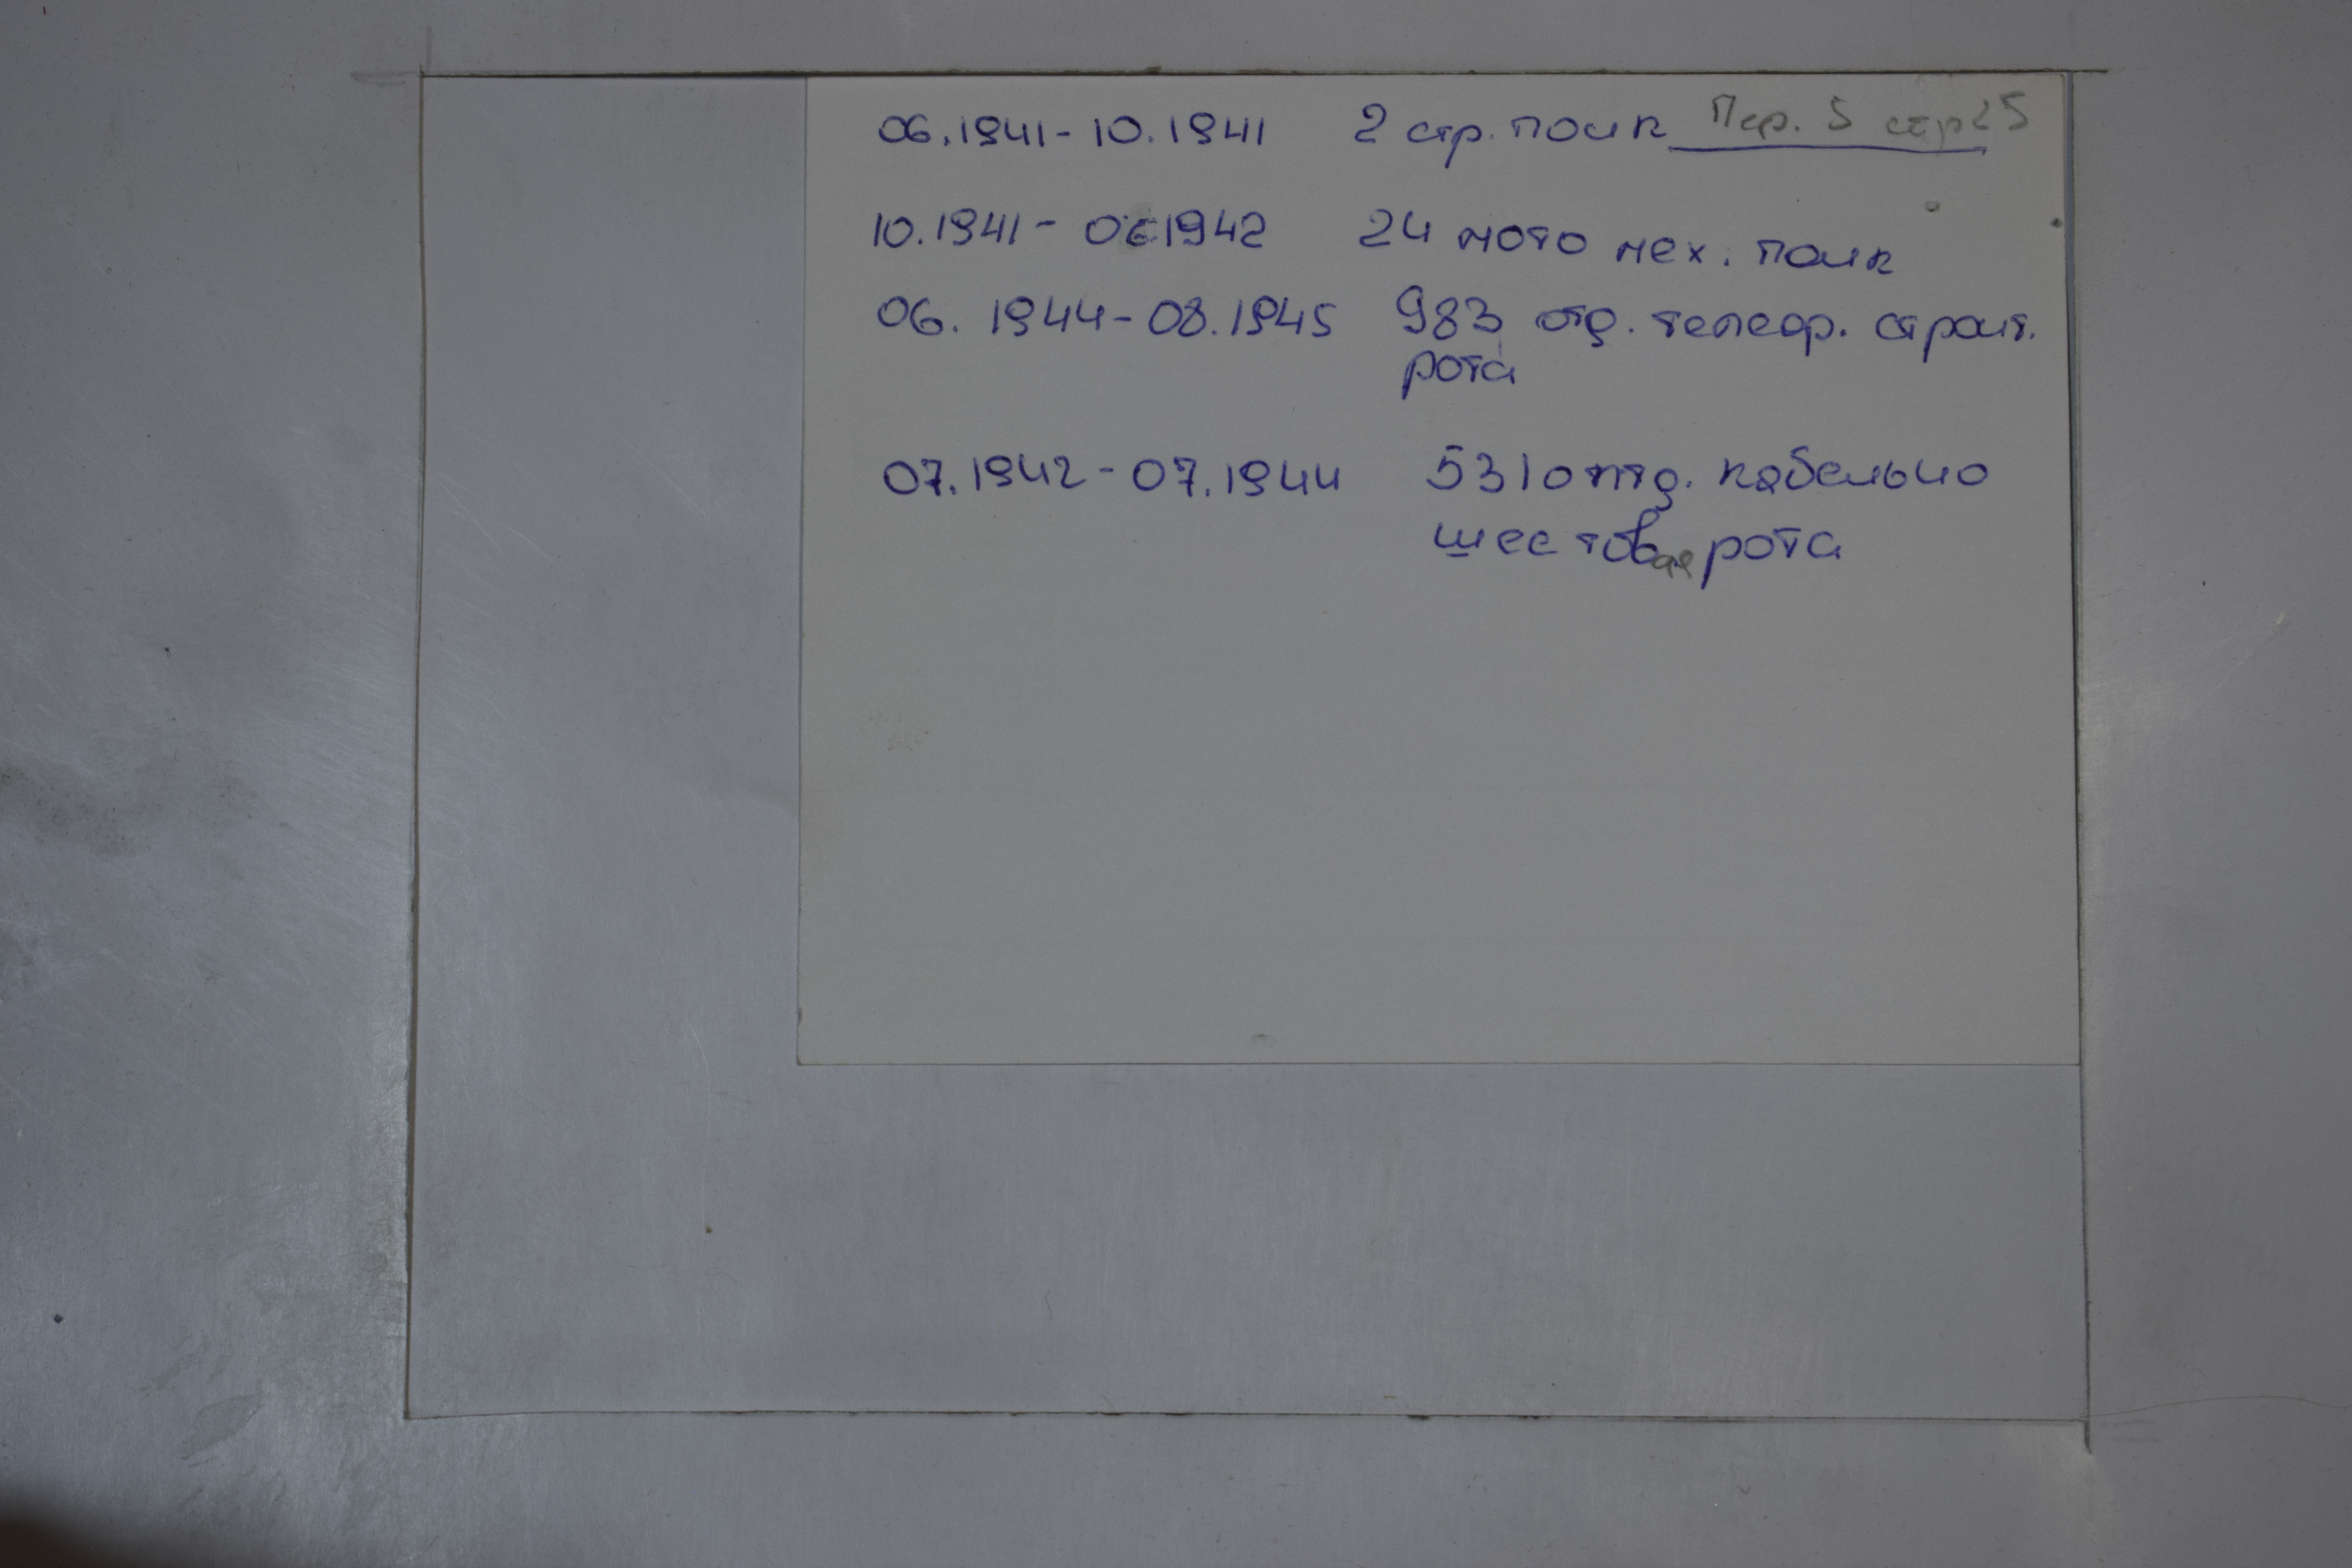 06.1941-10.1941 2 стр. полк Пер. 5 стр 25
10.1941- 06 1942 24 мото мех. полк
06. 1944-08.1945 983 отд. телегр. строит.
рота
07.1942-07.1944 531 отд. кабельно
шестовая рота